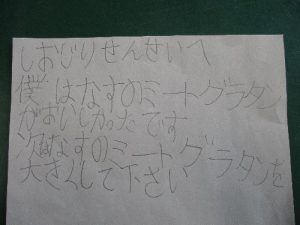 しおじりせんせいへ
僕はなすのミートグラタン
がおいしかったです
次はなすのミートグラタンを
大きくして下さい